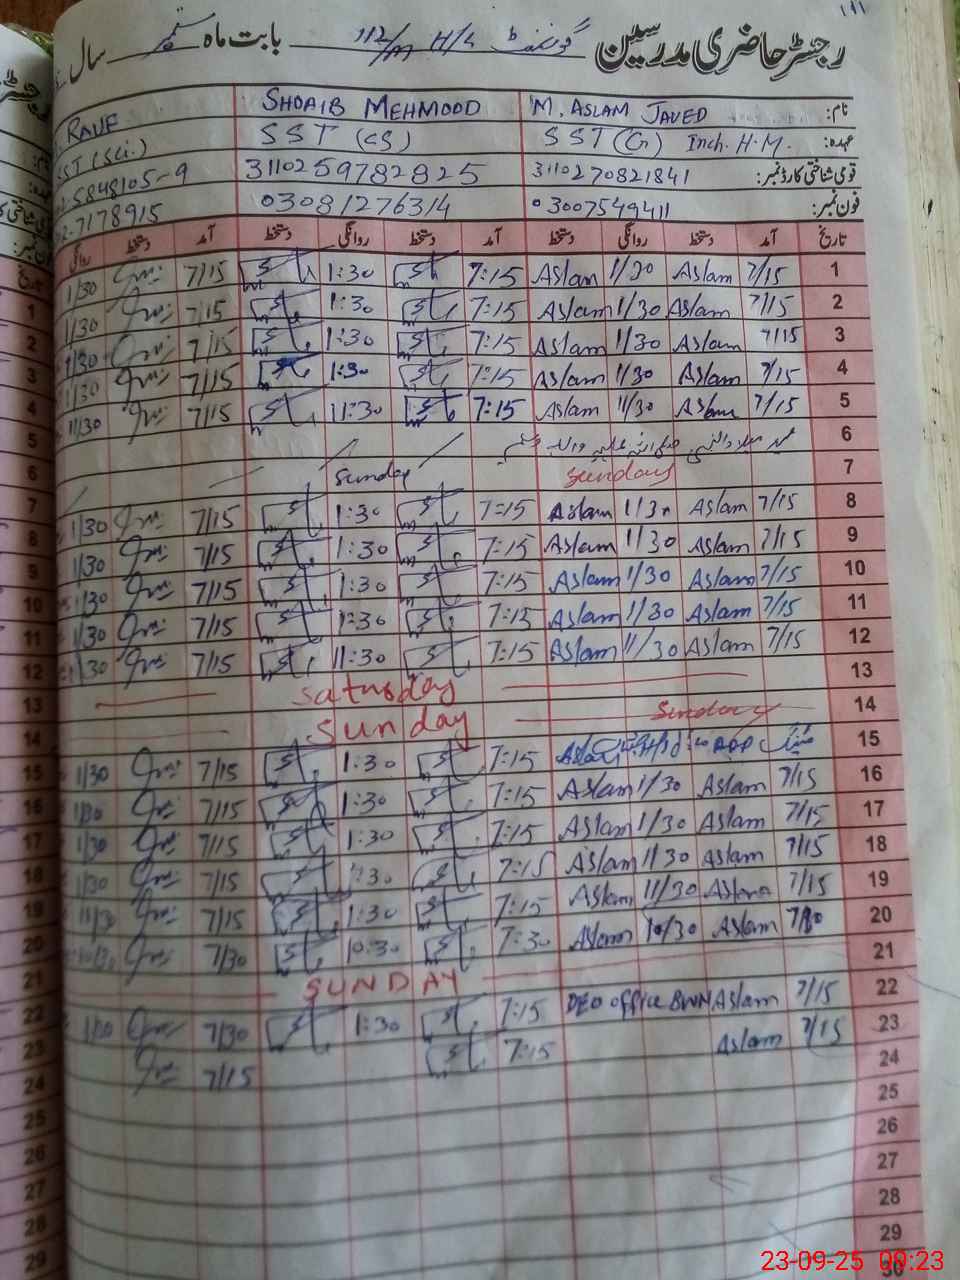 111
رجسٹر حاضری مدرسین گورنمنٹ H/S 112/M بابت ماہ ستمبر سال
نام: M. ASLAM JAVED SHOAIB MEHMOOD RAUF
عہدہ: SST (G) Inch. H.M. SST (CS) SST (Sci.)
قومی شناختی کارڈ نمبر: 3110270821841 3110259782825 5848105-9
فون نمبر: 03007549411 03081276314 2-7178915
تاریخ آمد دستخط روانگی دستخط آمد دستخط روانگی دستخط آمد دستخط روانگی
1 7/15 Aslam 1/30 Aslam 7:15 1:30 7/15 1/30
2 7/15 Aslam 1/30 Aslam 7:15 1:30 7/15 1/30
3 7/15 Aslam 1/30 Aslam 7:15 1:30 7/15 1/30
4 7/15 Aslam 1/30 Aslam 7:15 1:30 7/15 1/30
5 7/15 Aslam 11/30 Aslam 7:15 11:30 7/15 11/30
6
7 Sunday Sunday
8 7/15 Aslam 1/30 Aslam 7:15 1:30 7/15 1/30
9 7/15 Aslam 1/30 Aslam 7:15 1:30 7/15 1/30
10 7/15 Aslam 1/30 Aslam 7:15 1:30 7/15 1/30
11 7/15 Aslam 1/30 Aslam 7:15 1:30 7/15 1/30
12 7/15 Aslam 11/30 Aslam 7:15 11:30 7/15 1/30
13 Saturday
14 Sunday Sunday
15 7:15 1:30 7/15 1/30
16 7/15 Aslam 1/30 Aslam 7:15 1:30 7/15 1/30
17 7/15 Aslam 1/30 Aslam 7:15 1:30 7/15 1/30
18 7/15 Aslam 1/30 Aslam 7:15 1:30 7/15 1/30
19 7/15 Aslam 11/30 Aslam 7:15 1:30 7/15 11/30
20 7/30 Aslam 10/30 Aslam 7:30 10:30 7/30
21 SUNDAY
22 7/15 Aslam DEO office BWN 7:15 1:30 7/30 1/30
23 7/15 Aslam 7:15 7/15
24
25
26
27
28
29
30
23-09-25 09:23